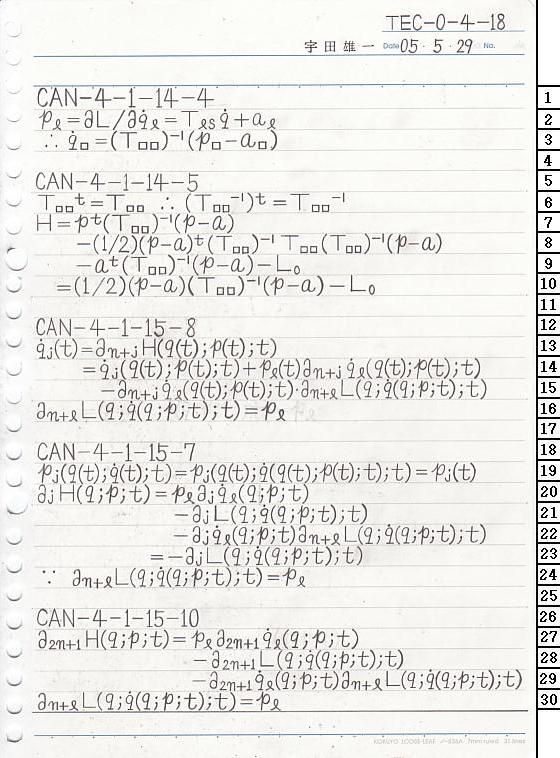 TEC-0-4-18
宇田雄一 Date 05・5・29 No.
CAN-4-1-14-4
pℓ=∂L/∂q̇ℓ=Tℓsq̇+aℓ
∴ q̇□=(T□□)⁻¹(p□-a□)
CAN-4-1-14-5
T□□ᵗ=T□□ ∴ (T□□⁻¹)ᵗ=T□□⁻¹
H=pᵗ(T□□)⁻¹(p-a)
-(1/2)(p-a)ᵗ(T□□)⁻¹T□□(T□□)⁻¹(p-a)
-aᵗ(T□□)⁻¹(p-a)-L₀
=(1/2)(p-a)(T□□)⁻¹(p-a)-L₀
CAN-4-1-15-8
q̇j(t)=∂n+jH(q(t);p(t);t)
=q̇j(q(t);p(t);t)+pℓ(t)∂n+jq̇ℓ(q(t);p(t);t)
-∂n+jq̇ℓ(q(t);p(t);t)・∂n+ℓL(q;q̇(q;p;t);t)
∂n+ℓL(q;q̇(q;p;t);t)=pℓ
CAN-4-1-15-7
pj(q(t);q̇(t);t)=pj(q(t);q̇(q(t);p(t);t);t)=pj(t)
∂jH(q;p;t)=pℓ∂jq̇ℓ(q;p;t)
-∂jL(q;q̇(q;p;t);t)
-∂jq̇ℓ(q;p;t)∂n+ℓL(q;q̇(q;p;t);t)
=-∂jL(q;q̇(q;p;t);t)
∵ ∂n+ℓL(q;q̇(q;p;t);t)=pℓ
CAN-4-1-15-10
∂2n+1H(q;p;t)=pℓ∂2n+1q̇ℓ(q;p;t)
-∂2n+1L(q;q̇(q;p;t);t)
-∂2n+1q̇ℓ(q;p;t)∂n+ℓL(q;q̇(q;p;t);t)
∂n+ℓL(q;q̇(q;p;t);t)=pℓ
KOKUYO LOOSE-LEAF ノ-836A 7mm ruled 31 lines
1
2
3
4
5
6
7
8
9
10
11
12
13
14
15
16
17
18
19
20
21
22
23
24
25
26
27
28
29
30